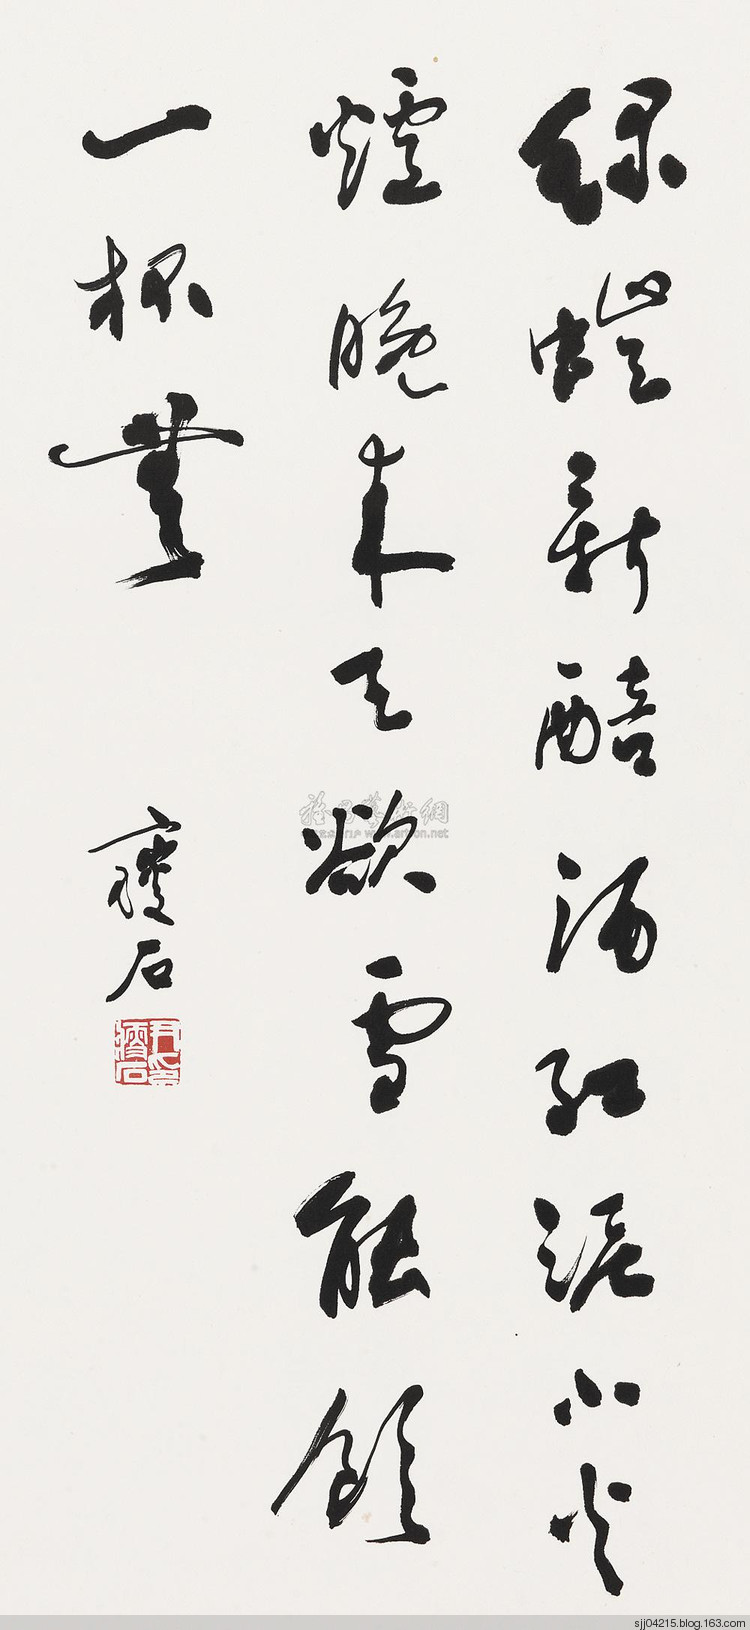 綠螘新醅酒紅泥小火
爐晚来天欲雪能飲
一杯無
瘦石
雅昌藝術網
www.artron.net
sjj04215.blog.163.com